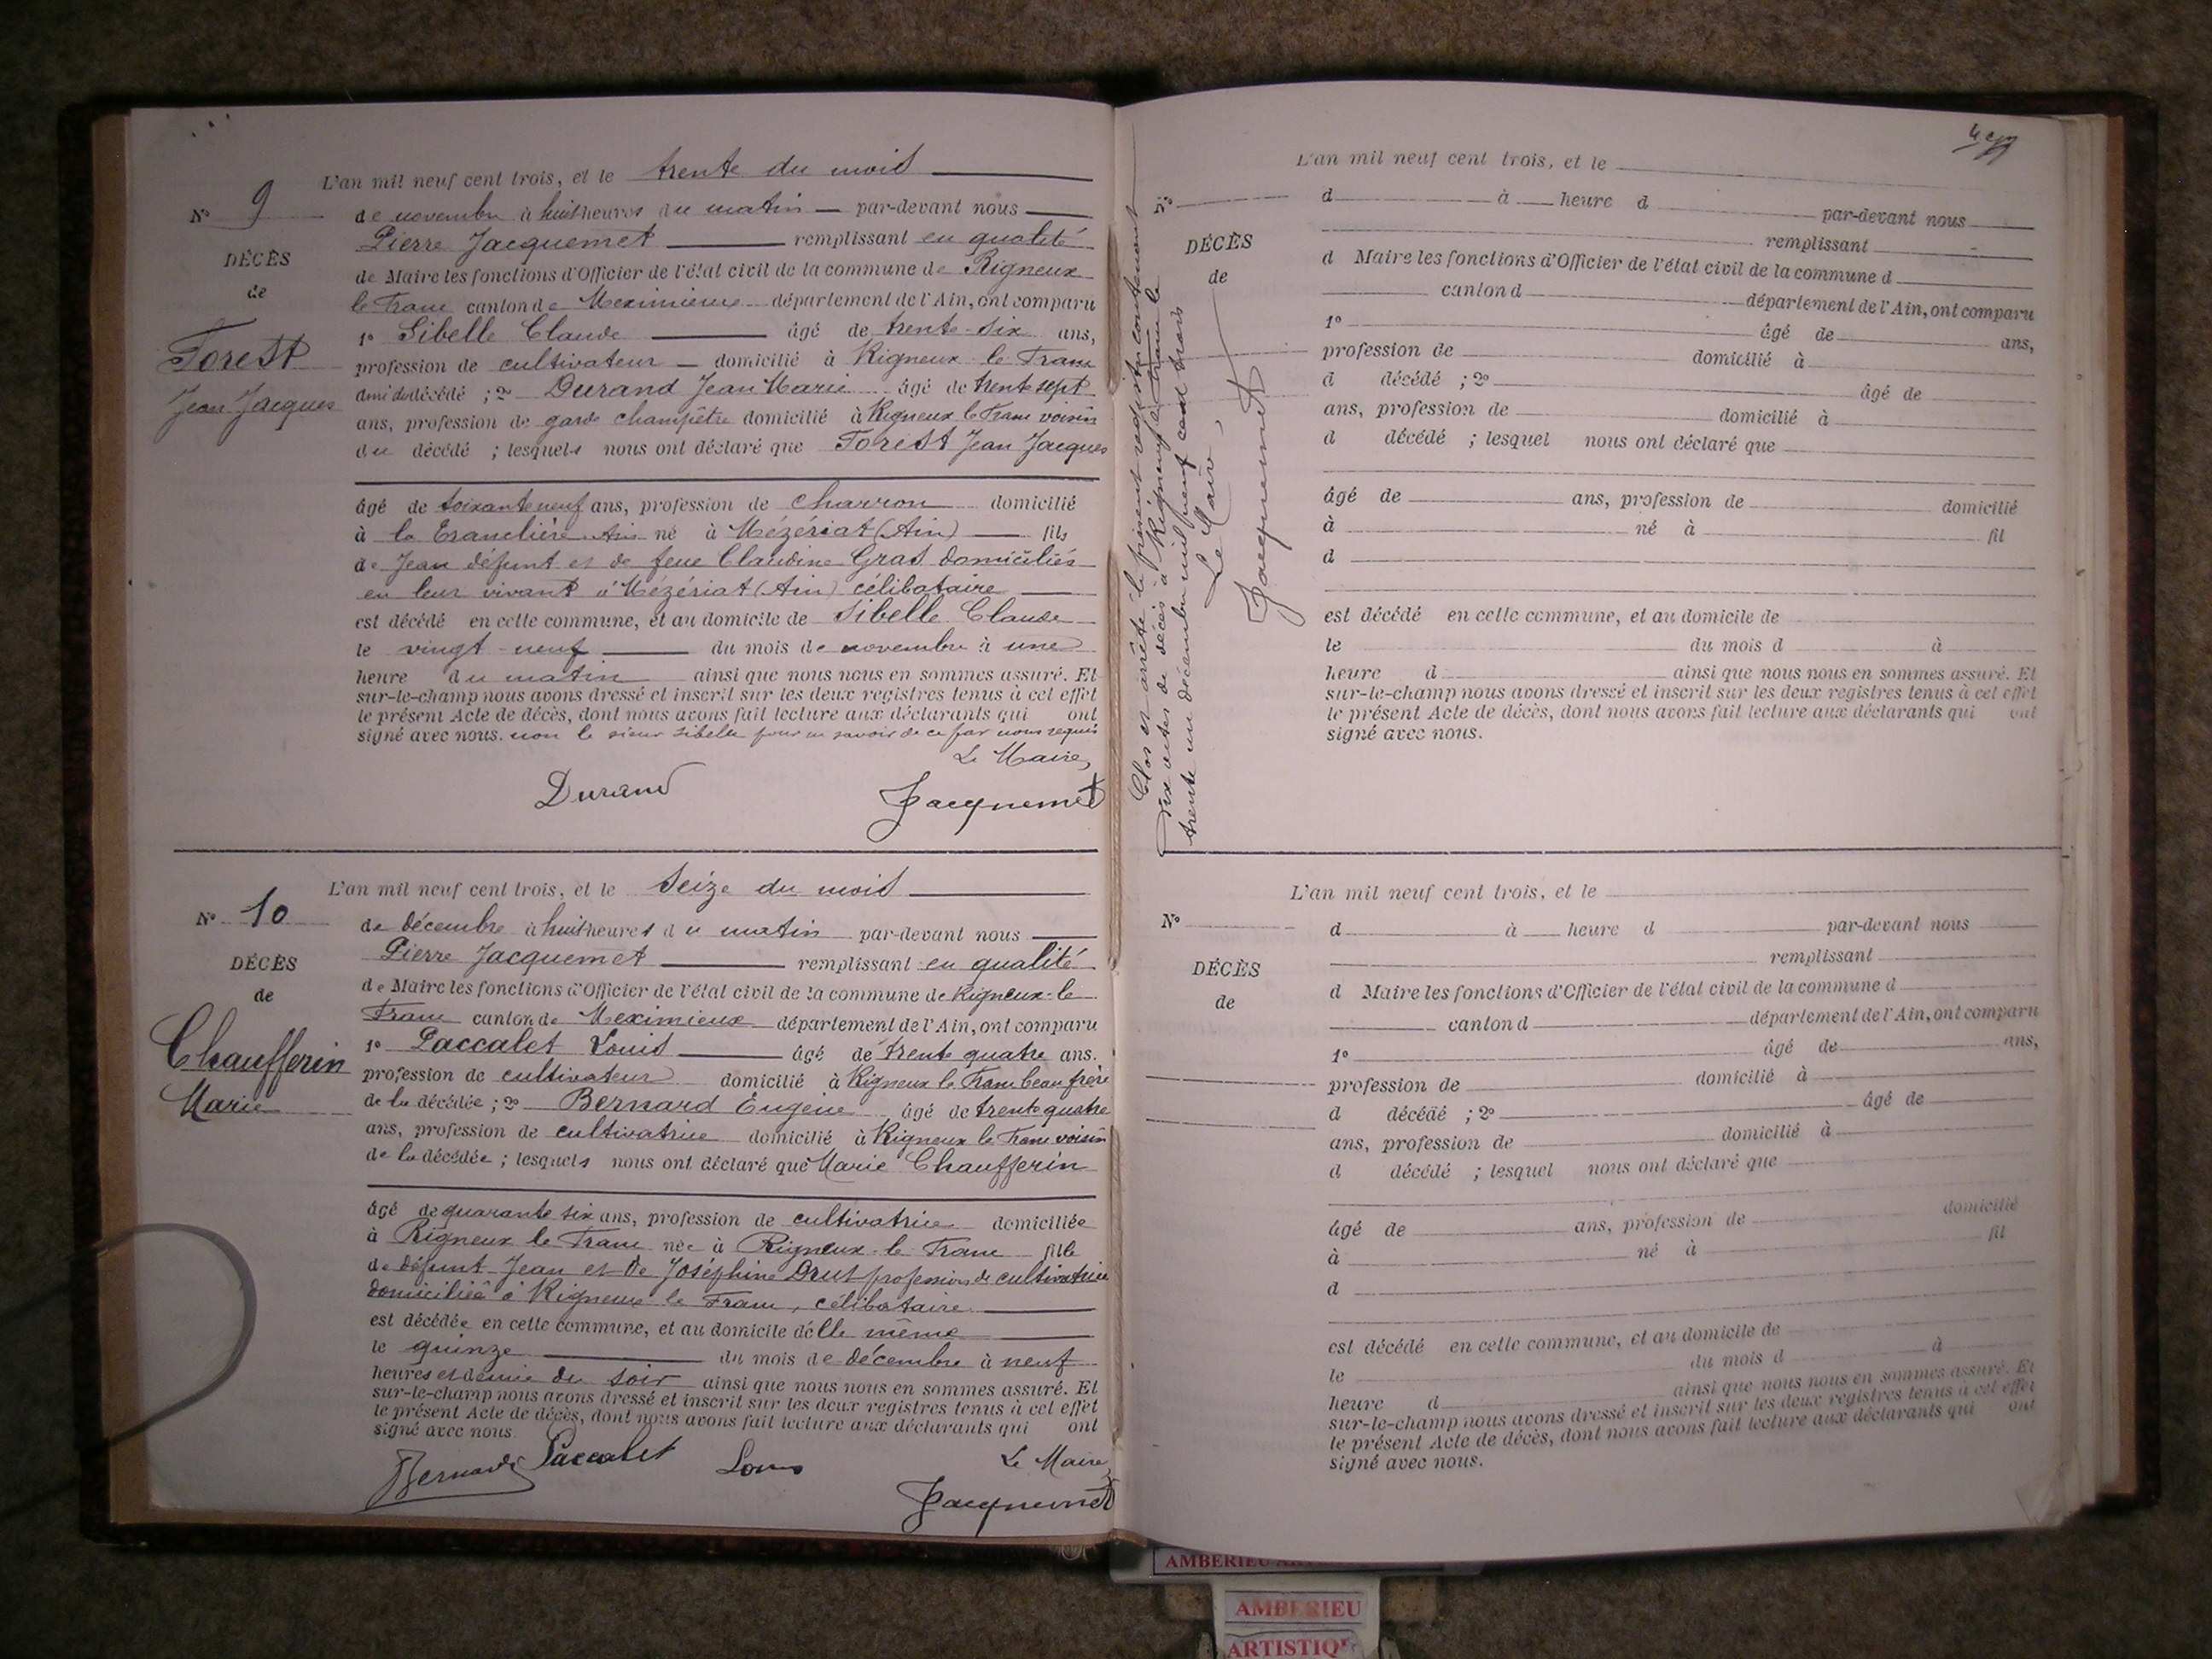 L'an mil neuf cent trois, et le trente du mois
N° 9
de novembre à huit heures du matin par-devant nous
Pierre Jacquemet remplissant en qualité
DÉCÈS
de Maire les fonctions d'Officier de l'état civil de la commune de Rigneux
de
le Franc canton de Meximieux département de l'Ain, ont comparu
1° Sibelle Claude âgé de trente-six ans,
Forest
profession de cultivateur domicilié à Rigneux le Franc
Jean Jacques
ami du décédé ; 2° Durand Jean Marie âgé de trente sept
ans, profession de garde champêtre domicilié à Rigneux le Franc voisin
du décédé ; lesquels nous ont déclaré que Forest Jean Jacques
âgé de soixante neuf ans, profession de charron domicilié
à la Tranclière Ain né à Mézériat (Ain) fils
de Jean défunt et de feue Claudine Gras domiciliés
en leur vivant à Mézériat (Ain) célibataire
est décédé en cette commune, et au domicile de Sibelle Claude
le vingt-neuf du mois de novembre à une
heure du matin ainsi que nous nous en sommes assuré. Et
sur-le-champ nous avons dressé et inscrit sur les deux registres tenus à cet effet
le présent Acte de décès, dont nous avons fait lecture aux déclarants qui ont
signé avec nous. non le sieur Sibelle pour ne savoir de ce par nous requis
Le Maire,
Durand Jacquemet
L'an mil neuf cent trois, et le seize du mois
N° 10
de décembre à huit heures du matin par-devant nous
Pierre Jacquemet remplissant en qualité
DÉCÈS
de Maire les fonctions d'Officier de l'état civil de la commune de Rigneux-le
de
Franc canton de Meximieux département de l'Ain, ont comparu
1° Paccalet Louis âgé de trente quatre ans.
Chaufferin
profession de cultivateur domicilié à Rigneux le Franc beau frère
Marie
de la décédée ; 2° Bernard Eugénie âgé de trente quatre
ans, profession de cultivatrice domicilié à Rigneux le Franc voisin
de la décédée ; lesquels nous ont déclaré que Marie Chaufferin
âgé de quarante six ans, profession de cultivatrice domiciliée
à Rigneux le Franc née à Rigneux-le Franc fille
de défunt Jean et de Joséphine Drut profession de cultivatrice
domiciliée à Rigneux le Franc, célibataire
est décédée en cette commune, et au domicile d'elle même
le quinze du mois de décembre à neuf
heures et demie du soir ainsi que nous nous en sommes assuré. Et
sur-le-champ nous avons dressé et inscrit sur les deux registres tenus à cet effet
le présent Acte de décès, dont nous avons fait lecture aux déclarants qui ont
signé avec nous.
Bernard Paccalet Louis Le Maire,
Jacquemet
Clos et arrêté le présent registre contenant
dix actes de décès à Rigneux le Franc le
trente un décembre mil neuf cent trois
Le Maire,
Jacquemet
L'an mil neuf cent trois, et le
N°
d à heure d par-devant nous
remplissant
DÉCÈS
d Maire les fonctions d'Officier de l'état civil de la commune d
de
canton d département de l'Ain, ont comparu
1° âgé de ans,
profession de domicilié à
d décédé ; 2° âgé de
ans, profession de domicilié à
d décédé ; lesquel nous ont déclaré que
âgé de ans, profession de domicilié
à né à fil
d
est décédé en cette commune, et au domicile de
le du mois d à
heure d ainsi que nous nous en sommes assuré. Et
sur-le-champ nous avons dressé et inscrit sur les deux registres tenus à cet effet
le présent Acte de décès, dont nous avons fait lecture aux déclarants qui ont
signé avec nous.
L'an mil neuf cent trois, et le
N°
d à heure d par-devant nous
remplissant
DÉCÈS
d Maire les fonctions d'Officier de l'état civil de la commune d
de
canton d département de l'Ain, ont comparu
1° âgé de ans,
profession de domicilié à
d décédé ; 2° âgé de
ans, profession de domicilié à
d décédé ; lesquel nous ont déclaré que
âgé de ans, profession de domicilié
à né à fil
d
est décédé en cette commune, et au domicile de
le du mois d à
heure d ainsi que nous nous en sommes assuré. Et
sur-le-champ nous avons dressé et inscrit sur les deux registres tenus à cet effet
le présent Acte de décès, dont nous avons fait lecture aux déclarants qui ont
signé avec nous.
AMBERIEU
AMBERIEU
ARTISTIQ